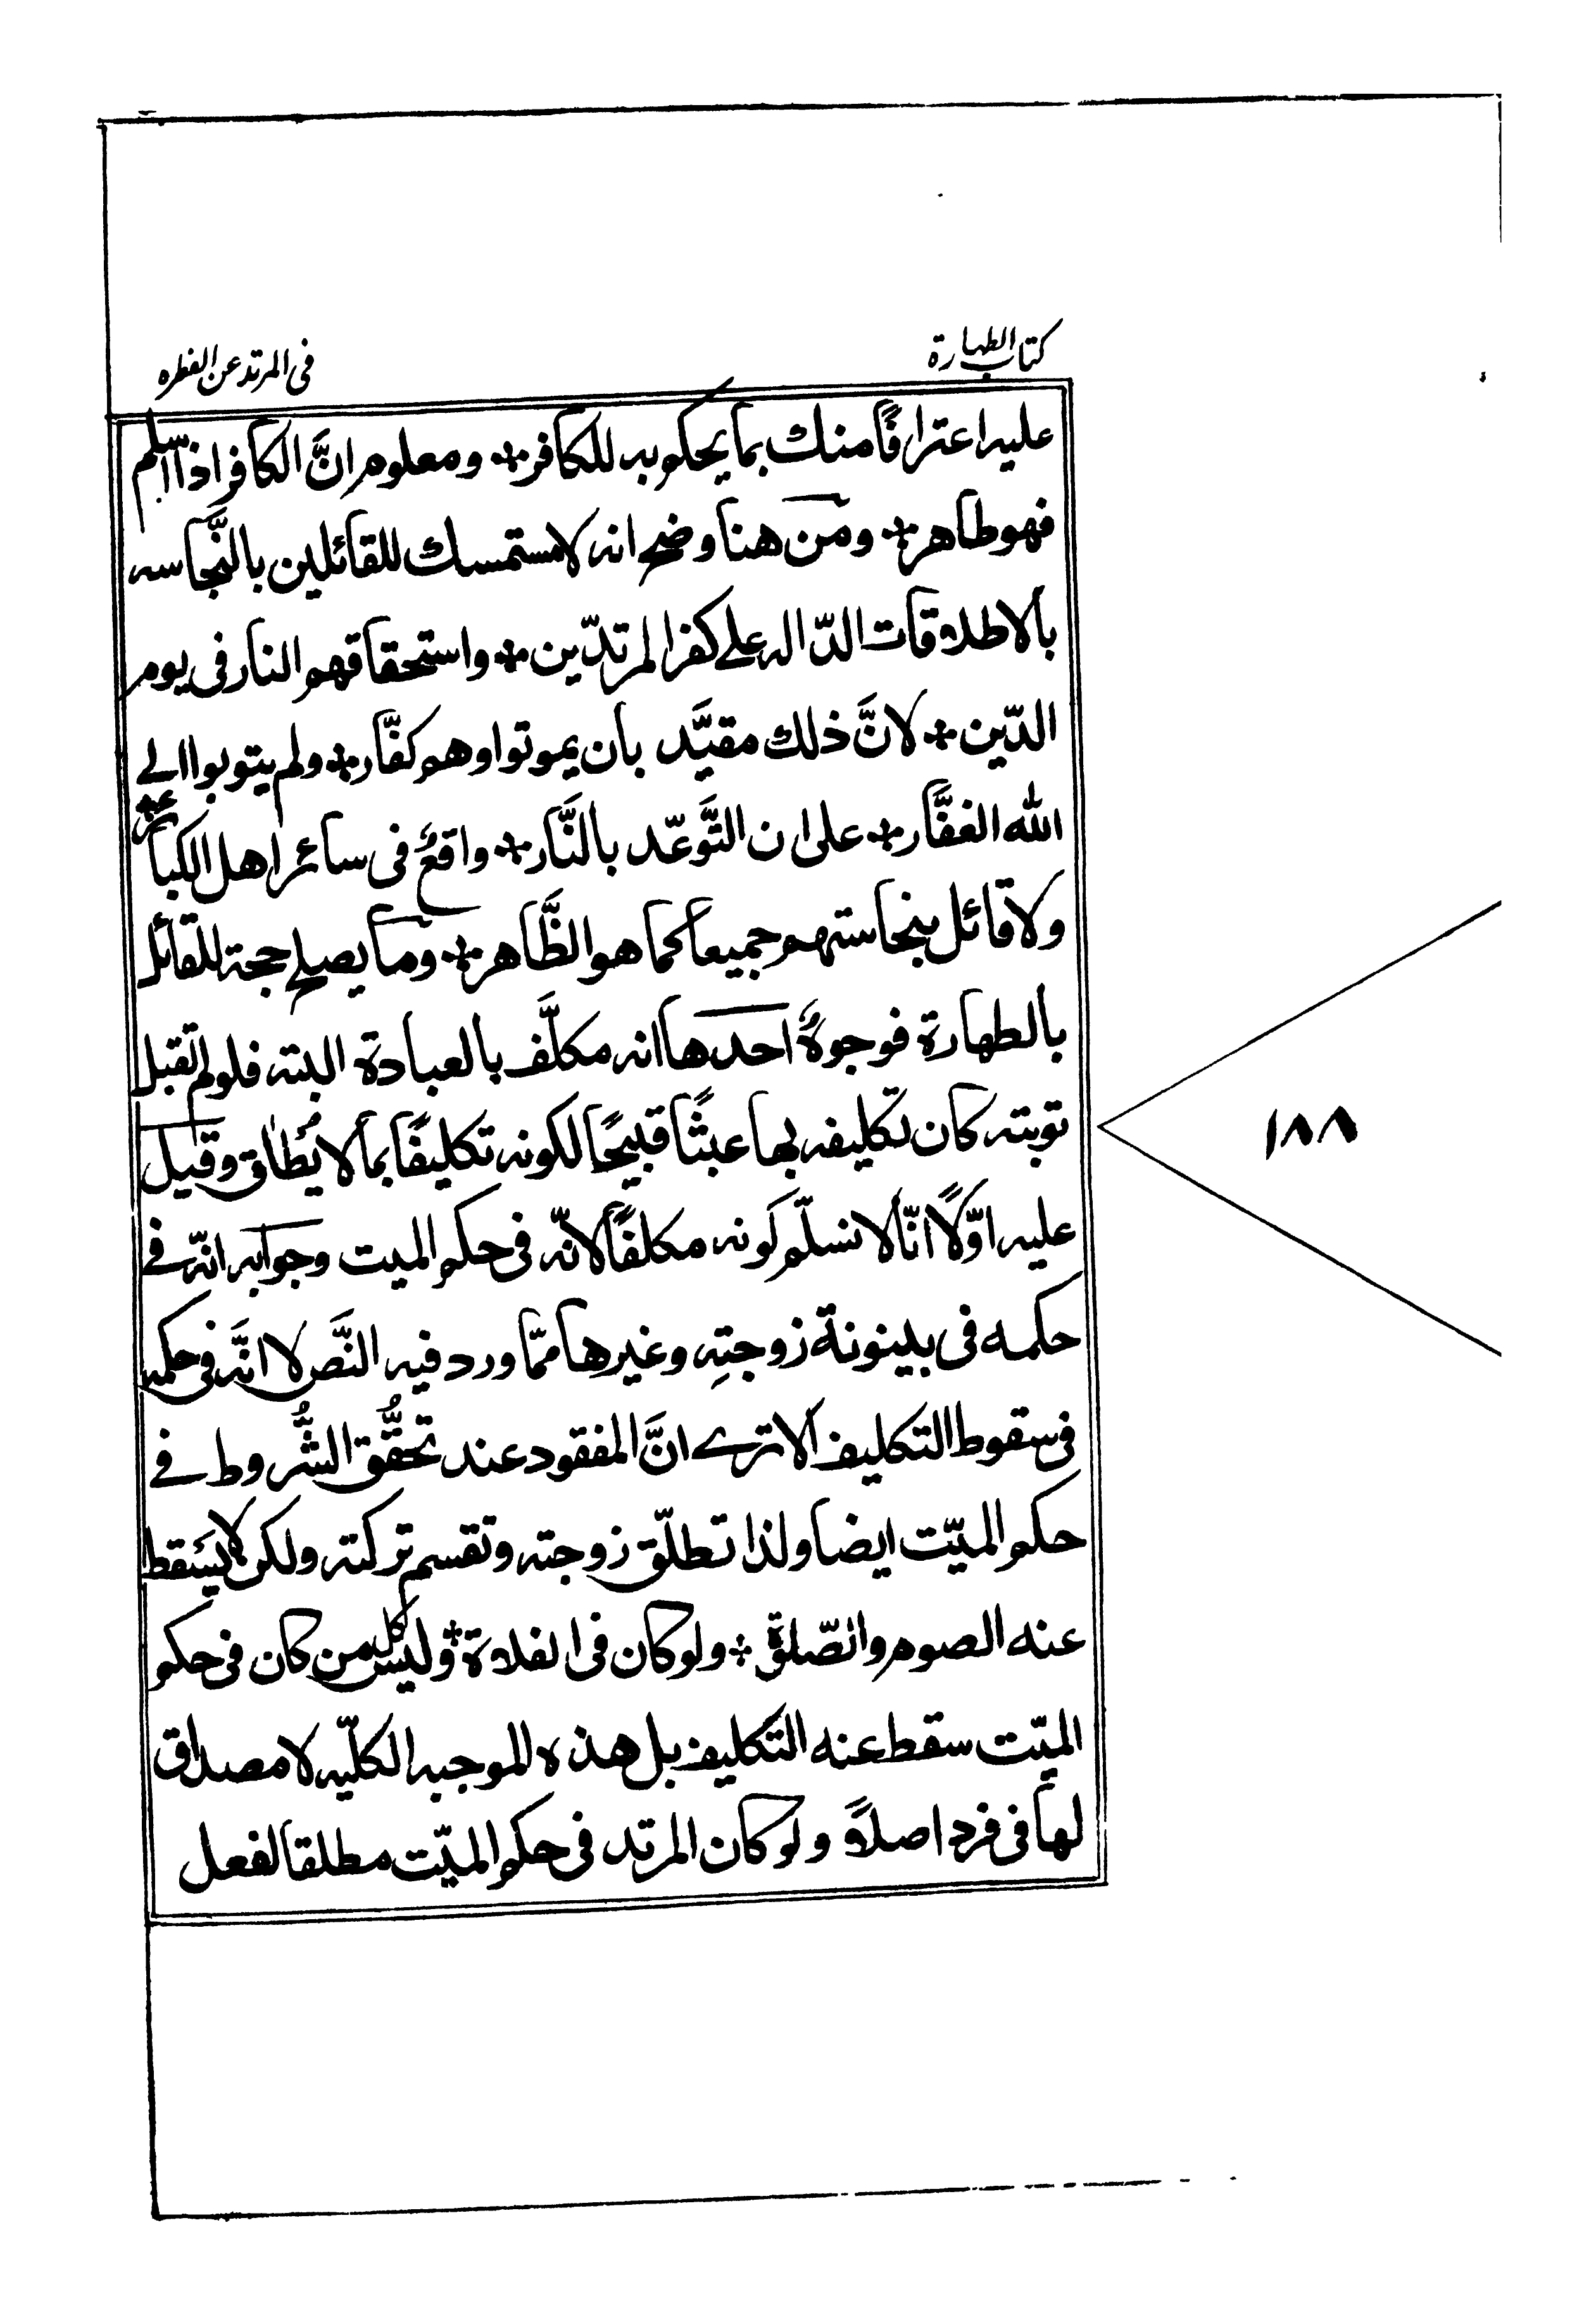 كتاب الطهارة
فى المرتد عن الفطره
عليه اعترافًا منك بما يحكم به للكافر ومعلوم انَّ الكافر اذا اسلم
فهو طاهر ومن هنا وضح انه لا مستمسك للقائلين بالنَّجاسه
بالاطلاقات الدّاله على كفر المرتدّين واستحقاقهم النار فى يوم
الدّين لانَّ ذلك مقيَّد بان يموتوا وهم كفَّار ولم يتوبوا الى
الله الغفَّار على ان التَّوعّد بالنَّار واقعٌ فى سائر اهل الكبائر
ولا قائل بنجاستهم جميعاً كما هو الظَّاهر وما يصلح حجة للقائل
بالطهارة فوجوهٌ احدها انه مكلَّف بالعبادة البته فلو لم تقبل
توبته كان تكليفه بها عبثًا قبيحًا لكونه تكليفًا بما لا يُطاق وقيل
عليه اوّلًا انّا لا نسلّم كونه مكلفًا لانّه فى حكم الميت وجوابه انّه فى
حكمه فى بينونة زوجتِه وغيرها ممّا ورد فيه النَّص لا انَّه فى حكمه
فى سقوط التكليف الا ترى انَّ المفقود عند تحقُّق الشُّروط فى
حكم الميّت ايضا ولذا تطلّق زوجته وتقسم تركته ولكن لا يسقط
عنه الصوم والصّلوة ولو كان فى الفلاة وليس كل من كان فى حكم
الميّت سقط عنه التكليف بل هذه الموجبه الكلّيه لا مصداق
لها فى فرد اصلاً ولو كان المرتد فى حكم الميّت مطلقا لفعل
١٨٨